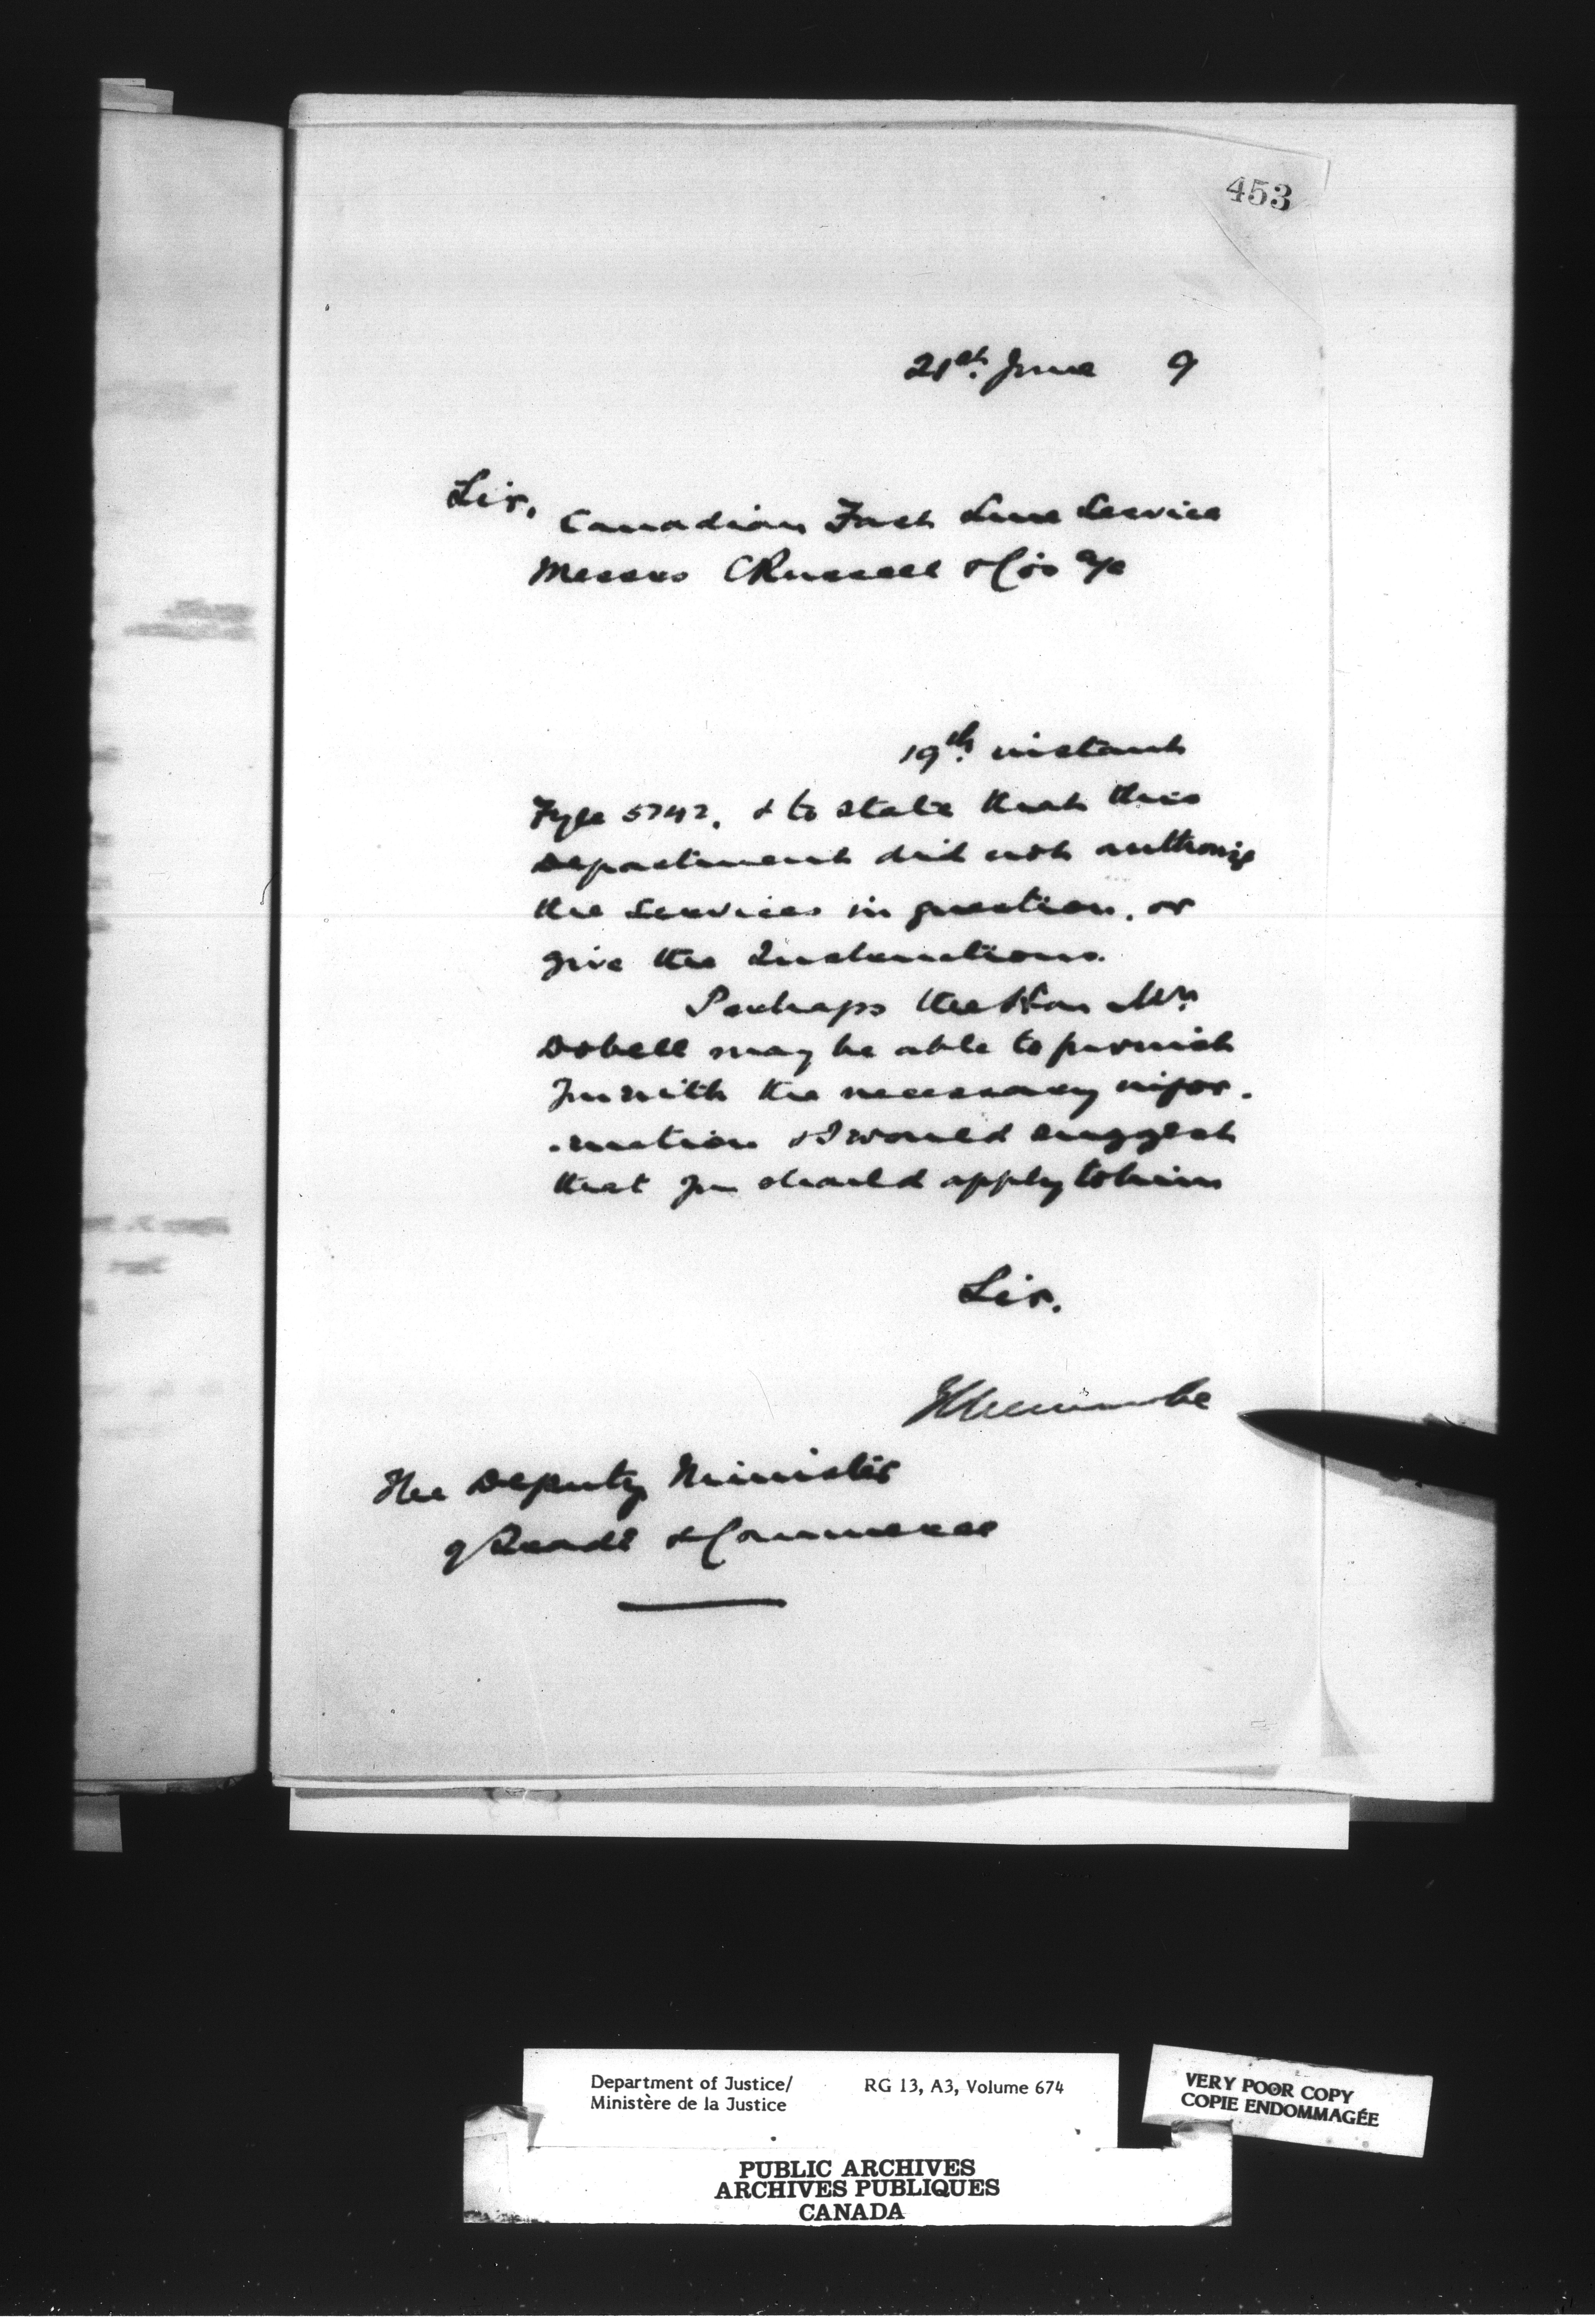 453
21st. June 9
Sir,
Canadian Fast Line Service
Messrs C Russell & Co's a/c
19th. instant
Fyle 5742, & to state that this
Department did not authorize
the services in question, or
give the Instructions.
Perhaps the Hon Mr.
Dobell may be able to furnish
you with the necessary infor-
-mation & I would suggest
that you should apply to him
Sir.
The Deputy Minister
of Trade & Commerce
Department of Justice/ RG 13, A3, Volume 674
Ministère de la Justice
VERY POOR COPY
COPIE ENDOMMAGÉE
PUBLIC ARCHIVES
ARCHIVES PUBLIQUES
CANADA